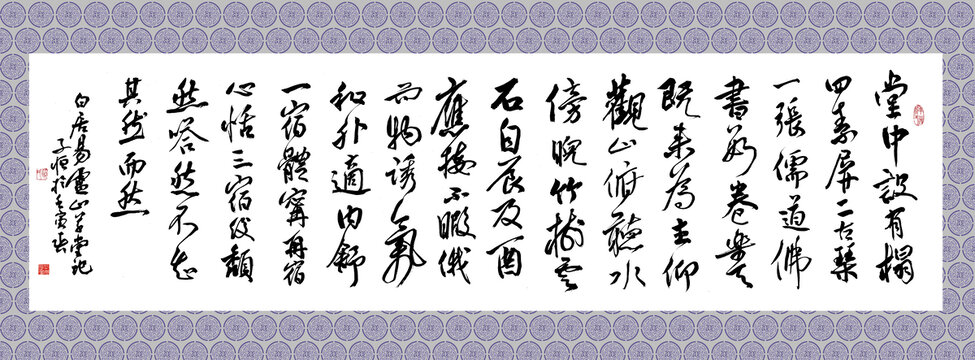 堂中設有榻
四素屏二古琴
一張儒道佛
書數卷樂天
既來為主仰
觀山俯聽水
傍睨竹樹雲
石自辰及酉
應接不暇俄
而物誘氣
和外適內舒
一宿體寧再宿
心恬三宿後頹
然嗒然不知
其然而然
白居易廬山草堂記
子恒於壬寅春